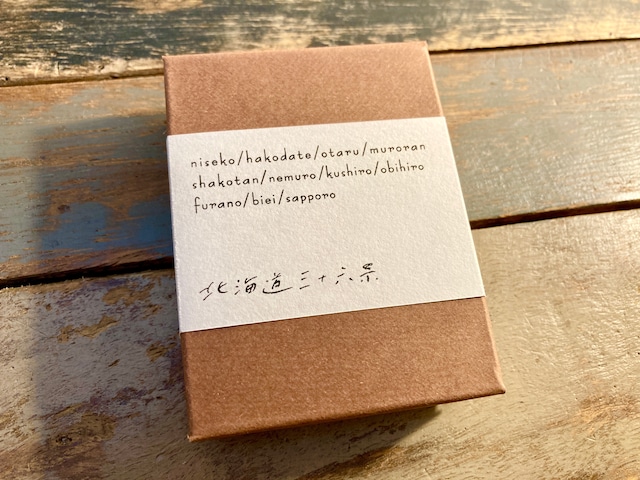 niseko/hakodate/otaru/muroran
shakotan/nemuro/kushiro/obihiro
furano/biei/sapporo
北海道三十六景